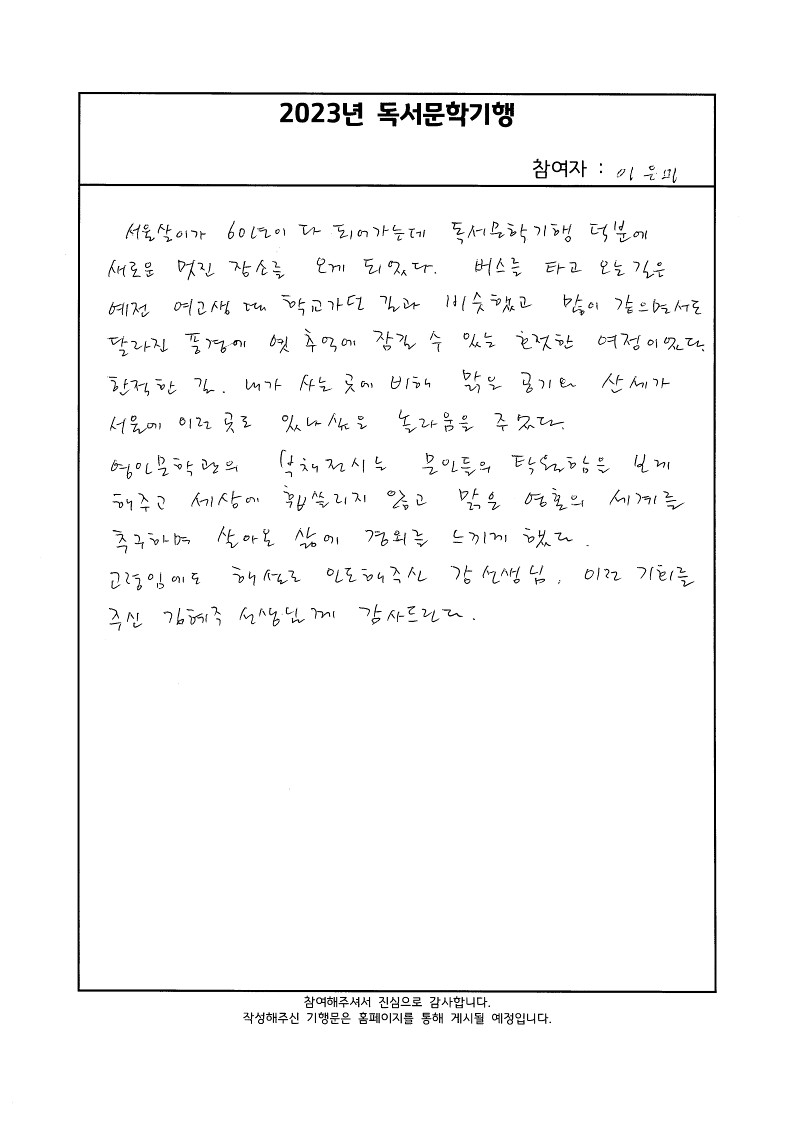 2023년 독서문학기행
참여자 : 이은미
서울살이가 60년이 다 되어가는데 독서문학기행 덕분에
새로운 멋진 장소를 오게 되었다. 버스를 타고 오는 길은
예전 여고생 때 학교가던 길과 비슷했고 많이 같으면서도
달라진 풍경에 옛 추억에 잠길 수 있는 호젓한 여정이었다.
한적한 길. 내가 사는 곳에 비해 맑은 공기와 산세가
서울에 이런 곳도 있나 싶은 놀라움을 주었다.
영인문학관의 부채전시는 문인들의 탁월함을 보게
해주고 세상에 휩쓸리지 않고 맑은 영혼의 세계를
추구하며 살아온 삶에 경외를 느끼게 했다.
고령임에도 해설로 인도해주신 강선생님, 이런 기회를
주신 김혜주 선생님께 감사드린다.
참여해주셔서 진심으로 감사합니다.
작성해주신 기행문은 홈페이지를 통해 게시될 예정입니다.